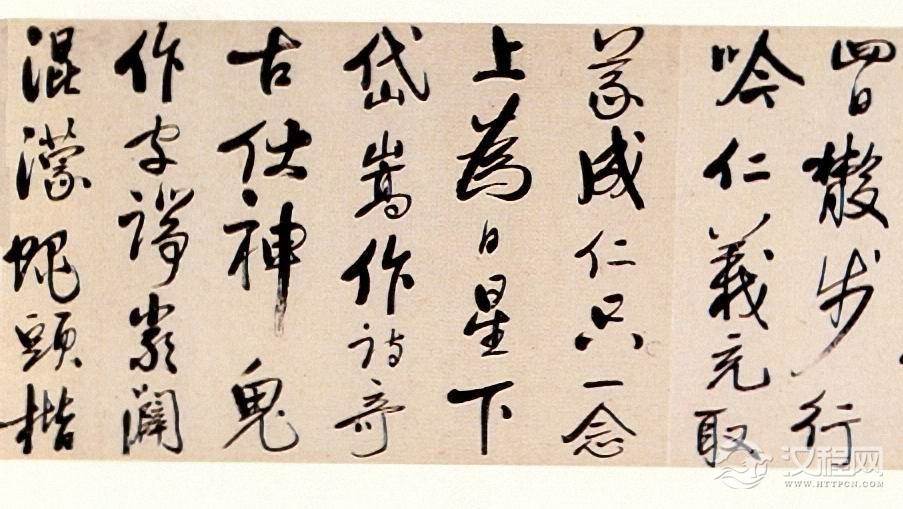 四日散步行
吟仁義充取
義成仁只一念
上為日星下
岱嵩作詩奇
古伏神鬼
作字端嚴闢
混濛蠅頭楷
汉程网
WWW.HTTPCN.COM